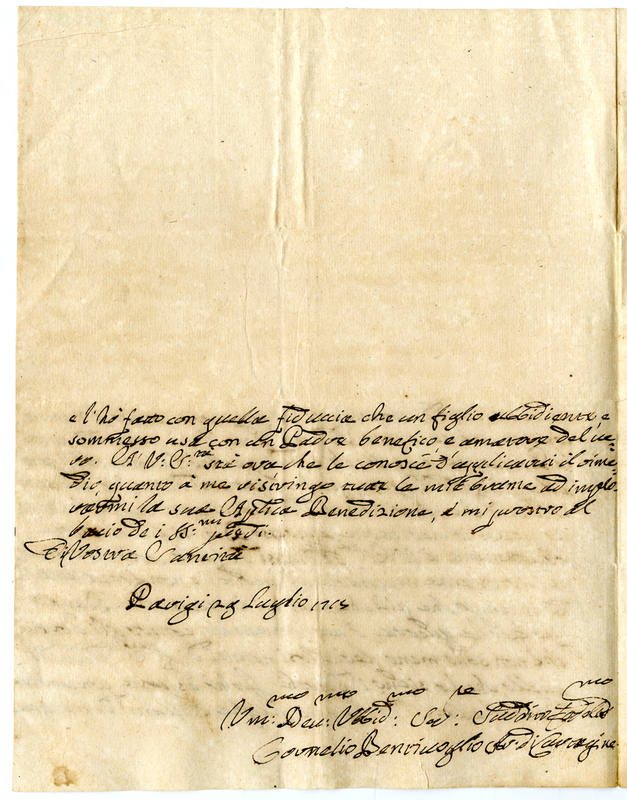 e l'hò fatto con quella fiduccia che un figlio ubbidiente, e
sommesso usa con un Padre benefico, e amatore del ve=
ro. A V: S:tà stà ora che le conosce d'applicarvi il rime=
dio, quanto à me ristringo tutte le mie brame ad implo=
rarmi la sua Aplica Benedizione, è mi prostro al
bacio de i SS:mi piedi.
Di Vostra Santità
Parigi 29 Luglio
Um:mo Dev:mo Ubbid:mo Ser:re
Cornelio Bentivoglio di Cartagine